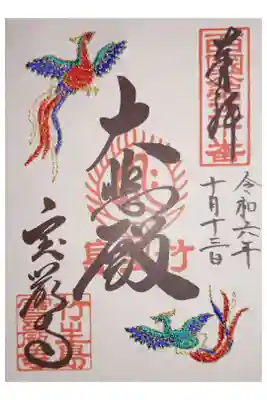 奉拝
令和六年
十月十三日
大悲殿
宝厳寺